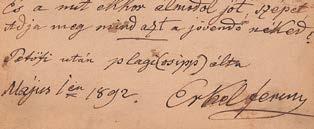 És a mit ekkor álmodol jót szépet
Adja meg mind azt a jövendő néked!
Petőfi után plagi(osipp) álta
Május 1én 1892. Erkel Ferenc